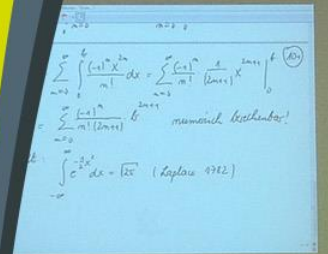 ∞ Σ m=0 ∫ 0 b (-1)^m x^{2m} / m! dx = Σ m=0 ∞ (-1)^m / m! 1/(2m+1) x^{2m+1} | 0 b
= Σ m=0 ∞ (-1)^m / m!(2m+1) · b^{2m+1} numerisch berechenbar!
∫ -∞ ∞ e^{-1/2 x²} dx = √2π (Laplace 1782)